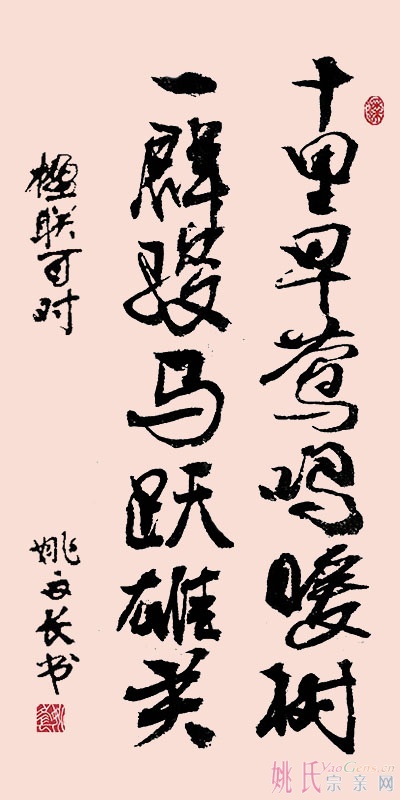 十里早莺鸣暖树
一群骏马跃雄关
楹联百对
姚长书
姚氏 YaoGens.cn
宗亲网